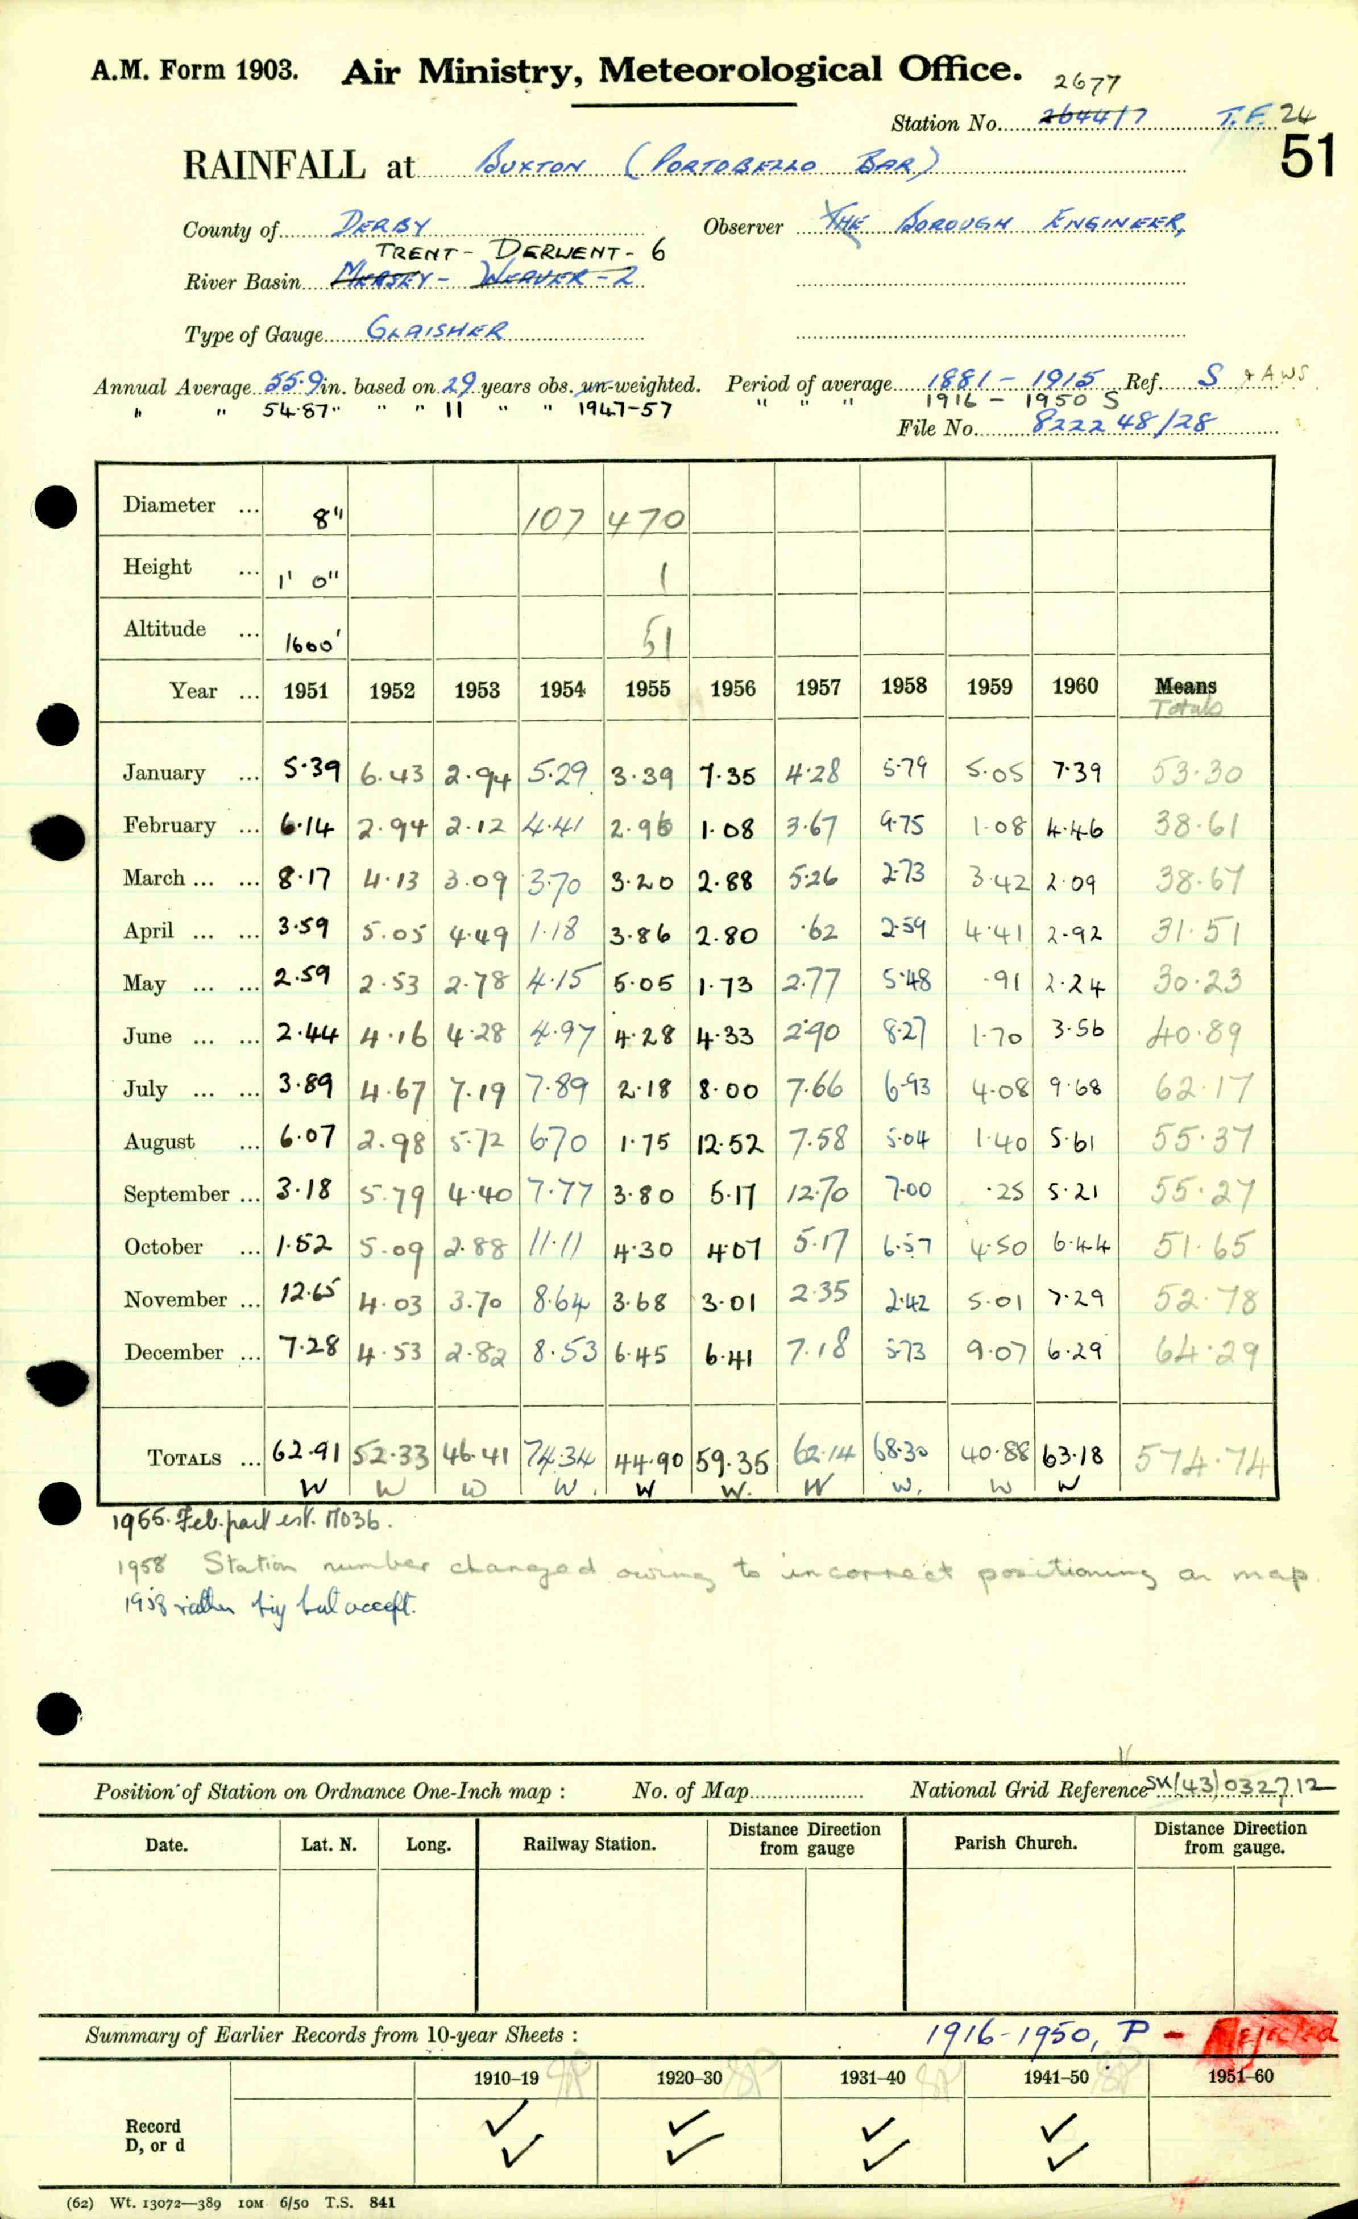 A.M. Form 1903. Air Ministry, Meteorological Office.
2677
Station No. 2644/7 T.F. 24
51
RAINFALL at BUXTON (PORTOBELLO BAR)
County of DERBY Observer THE BOROUGH ENGINEER,
TRENT - DERWENT - 6
River Basin MERSEY - WEAVER - 2
Type of Gauge GLAISHER
Annual Average 55.9 in. based on 29 years obs. un-weighted. Period of average 1881 - 1915 Ref. S & AWS
" " 54.87" " " 11 " " 1947-57 " " " 1916 - 1950 S
File No. 822248/28
Diameter ... 8" 107 470
Height ... 1' 0" 1
Altitude ... 1600' 51
Year ... 1951 1952 1953 1954 1955 1956 1957 1958 1959 1960 Means
Totals
January ... 5.39 6.43 2.94 5.29 3.39 7.35 4.28 5.79 5.05 7.39 53.30
February ... 6.14 2.94 2.12 4.41 2.96 1.08 3.67 9.75 1.08 4.46 38.61
March ... ... 8.17 4.13 3.09 3.70 3.20 2.88 5.26 2.73 3.42 2.09 38.67
April ... ... 3.59 5.05 4.49 1.18 3.86 2.80 .62 2.59 4.41 2.92 31.51
May ... ... 2.59 2.53 2.78 4.15 5.05 1.73 2.77 5.48 .91 2.24 30.23
June ... ... 2.44 4.16 4.28 4.97 4.28 4.33 2.90 8.27 1.70 3.56 40.89
July ... ... 3.89 4.67 7.19 7.89 2.18 8.00 7.66 6.93 4.08 9.68 62.17
August ... 6.07 2.98 5.72 6.70 1.75 12.52 7.58 5.04 1.40 5.61 55.37
September ... 3.18 5.79 4.40 7.77 3.80 5.17 12.70 7.00 .25 5.21 55.27
October ... 1.52 5.09 2.88 11.11 4.30 4.07 5.17 6.57 4.50 6.44 51.65
November ... 12.65 4.03 3.70 8.64 3.68 3.01 2.35 2.42 5.01 7.29 52.78
December ... 7.28 4.53 2.82 8.53 6.45 6.41 7.18 5.73 9.07 6.29 64.29
TOTALS ... 62.91 52.33 46.41 74.34 44.90 59.35 62.14 68.30 40.88 63.18 574.74
W W W W. W W. W W. W W
1955. Feb. part est. M036.
1958 Station number changed owing to incorrect positioning on map.
1958 rather big but accept.
Position of Station on Ordnance One-Inch map : No. of Map National Grid Reference SK(43)032712
Date. Lat. N. Long. Railway Station. Distance Direction from gauge Parish Church. Distance Direction from gauge.
Summary of Earlier Records from 10-year Sheets : 1916-1950, P - Rejected
1910-19 1920-30 1931-40 1941-50 1951-60
Record ✓ ✓ ✓ ✓
D, or d ✓ ✓ ✓ ✓
(62) Wt. 13072—389 10M 6/50 T.S. 841